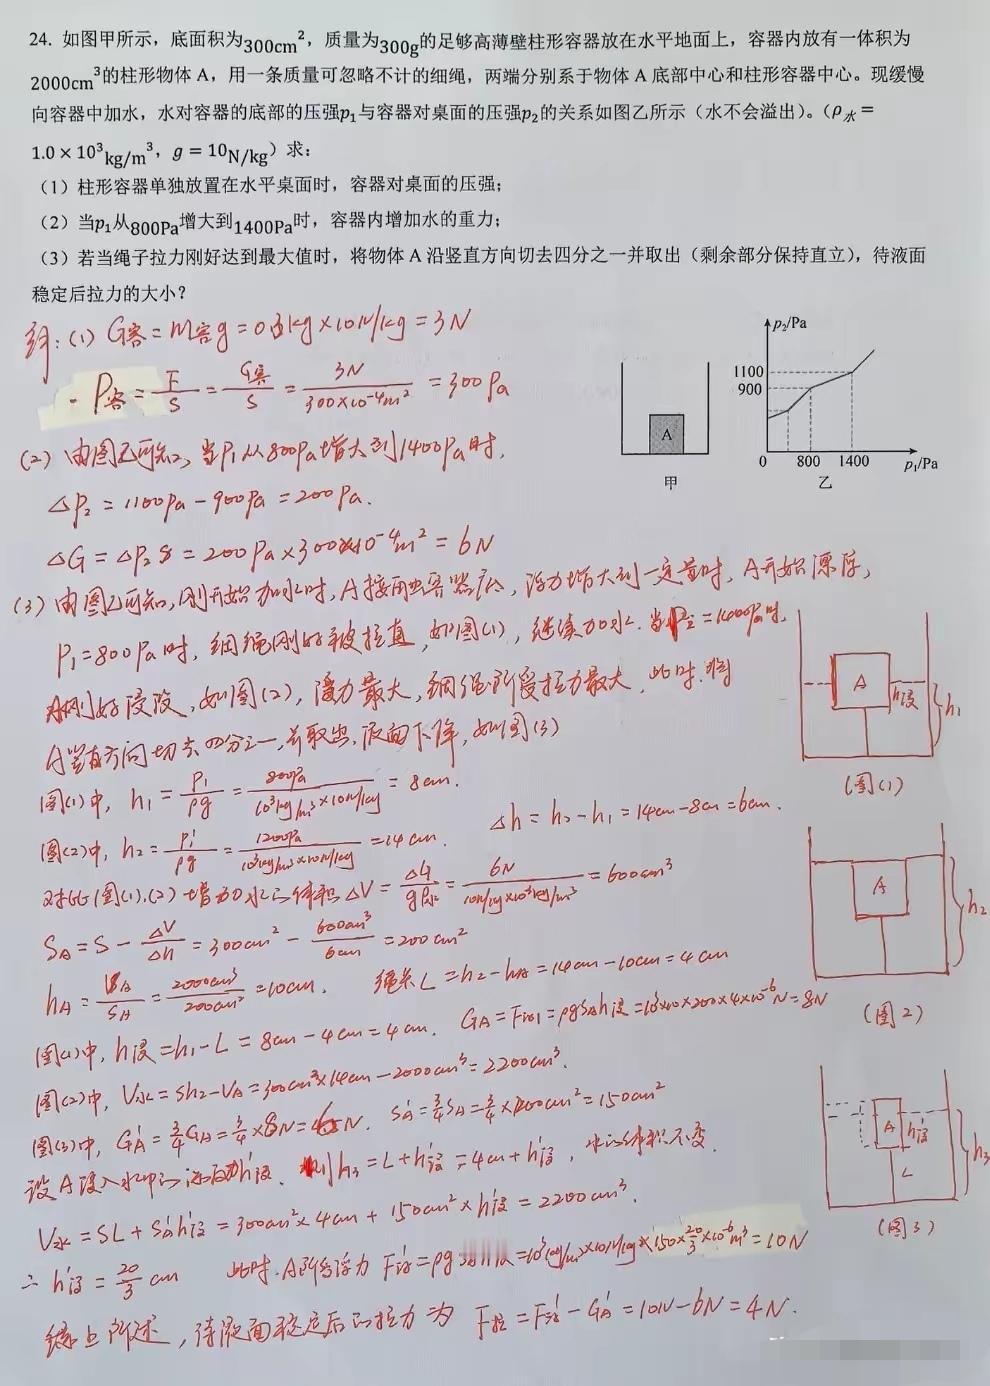 24. 如图甲所示，底面积为300cm²，质量为300g的足够高薄壁柱形容器放在水平地面上，容器内放有一体积为
2000cm³的柱形物体 A，用一条质量可忽略不计的细绳，两端分别系于物体 A 底部中心和柱形容器中心。现缓慢
向容器中加水，水对容器的底部的压强p₁与容器对桌面的压强p₂的关系如图乙所示（水不会溢出）。（ρ水 =
1.0 × 10³kg/m³，g = 10N/kg）求：
（1）柱形容器单独放置在水平桌面时，容器对桌面的压强；
（2）当p₁从800Pa增大到1400Pa时，容器内增加水的重力；
（3）若当绳子拉力刚好达到最大值时，将物体 A 沿竖直方向切去四分之一并取出（剩余部分保持直立），待液面
稳定后拉力的大小？
(1) G容 = m容g = 0.3kg×10N/kg = 3N
P容 = F/S = G容/S = 3N/300×10⁻⁴m² = 300Pa
(2) 由图乙可知，当P₁从800Pa增大到1400Pa时，
△P₂ = 1100Pa - 900Pa = 200Pa.
△G = △P₂S = 200Pa×300×10⁻⁴m² = 6N
(3) 由图乙可知，刚开始加水时，A接触容器底，浮力增大到一定量时，A开始漂浮，
P₁=800Pa时，细绳刚好被拉直，如图(1)，继续加水.当P=1400Pa时，
A刚好浸没，如图(2)，浮力最大，细绳所受拉力最大，此时将
A竖直方向切去四分之一，并取出，液面下降，如图(3)
图(1)中，h₁ = P₁/ρg = 800Pa/10³kg/m³×10N/kg = 8cm.
图(2)中，h₂ = P₁'/ρg = 1200Pa/10³kg/m³×10N/kg = 14cm. △h = h₂-h₁ = 14cm-8cm = 6cm.
对比图(1).(2)增加水的体积△V = △G/gρ水 = 6N/10N/kg×10³kg/m³ = 600cm³
SA = S - △V/△h = 300cm² - 600cm³/6cm = 200cm²
hA = VA/SA = 2000cm³/200cm² = 10cm. 绳长L = h₂-hA = 14cm-10cm = 4cm
图(1)中，h浸 = h₁-L = 8cm-4cm = 4cm. GA = F浮1 = ρgSAh浸 = 10³×10×200×4×10⁻⁶N = 8N
图(2)中，V水 = Sh₂-VA = 300cm²×14cm-2000cm³ = 2200cm³.
图(3)中，GA' = 3/4GA = 3/4×8N = 6N. SA' = 3/4SA = 3/4×200cm² = 150cm²
设A浸入水中的深度为h'浸. 则h₃ = L+h'浸 = 4cm+h'浸，水的体积不变.
V水 = SL+SA'h'浸 = 300cm²×4cm+150cm²×h'浸 = 2200cm³.
∴ h'浸 = 20/3 cm 此时.A所受浮力 F'浮 = ρgSA'h'浸 = 10³kg/m³×10N/kg×150×20/3×10⁻⁶m³ = 10N
综上所述，待液面稳定后的拉力为 F拉 = F'浮 - GA' = 10N-6N = 4N.
A
甲
p₂/Pa
1100
900
0 800 1400 p₁/Pa
乙
A h浸 h₁
(图(1)
A h₂
(图2)
A h'浸 L h₃
(图3)